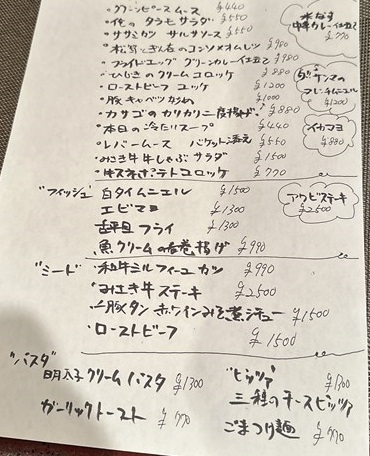 ・グリーンピースムース ¥440
・タラモサラダ ¥550
・ササミカツ サルサソース ¥550
のコンソメオムレツ ¥980
・フライドエッグ グリーンカレー仕立て ¥980
・ひじきのクリームコロッケ ¥880
・ローストビーフ ユッケ ¥1200
・豚キャベツ ¥1000
・カサゴのカリカリ二度揚げ ¥880
・本日の冷たいスープ ¥440
・レバームース バケット添え ¥550
・みさき牛 牛しゃぶサラダ ¥1500
・牛スネポテトコロッケ ¥770
水なす
中華カレー仕立て
¥770
サンマの
¥1200
イカマヨ
¥880
"フィッシュ" 白タイムニエル ¥1500
エビマヨ ¥1300
舌平目フライ ¥1300
魚クリームの春巻揚げ ¥990
アワビステーキ
¥2500
"ミート" ・和牛ミルフィーユカツ ¥990
・みさき牛ステーキ ¥2500
・豚タン 赤ワインみそ煮 ¥1500
・ローストビーフ ¥1500
"パスタ"
明太子クリームパスタ ¥1300
ガーリックトースト ¥770
"ピッツァ" ¥1300
三種のチーズピッツァ
ごまつけ麺 ¥770